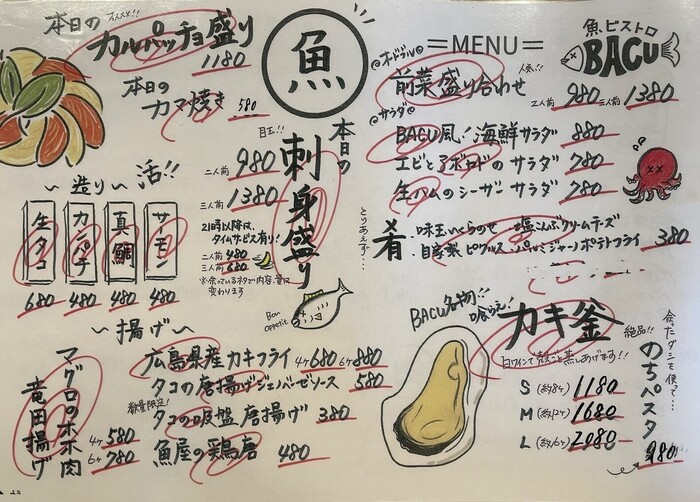 本日の オススメ!!
カルパッチョ盛り
1180
本日の
カマ焼き 580
魚
=MENU=
魚ビストロ
BACU
@オードブル@
前菜盛り合わせ 人気!!
二人前 980 三人前 1380
@サラダ@
BACU風!海鮮サラダ 880
エビとアボカドのサラダ 780
生ハムのシーザーサラダ 780
とりあえず…
肴
・味玉いくらのせ ・塩こんぶクリームチーズ
・自家製ピクルス ・パルミジャーノポテトフライ 380
目玉!!
本日の
刺身盛り
二人前 980
三人前 1380
21時以降は、
タイムサービス有り!
二人前 480
三人前 680
※余っているネタで内容、量は
変わります
Bon
appetit
~造り~ 活!!
生タコ 680
カンパチ 480
真鯛 480
サーモン 480
~揚げ~
マグロのホホ肉
竜田揚げ
4ヶ 580
6ヶ 780
広島県産カキフライ 4ヶ680 6ヶ880
タコの唐揚げジェノバーゼソース 580
数量限定!
タコの吸盤唐揚げ 380
魚屋の鶏唐 480
BACU名物!!
喰らえ!
カキ釜
白ワインで殻ごと蒸しあげます!!
S (約8ヶ) 1180
M (約12ヶ) 1680
L (約16ヶ) 2080
絶品!!
余ったダシを使って…
のちパスタ
980